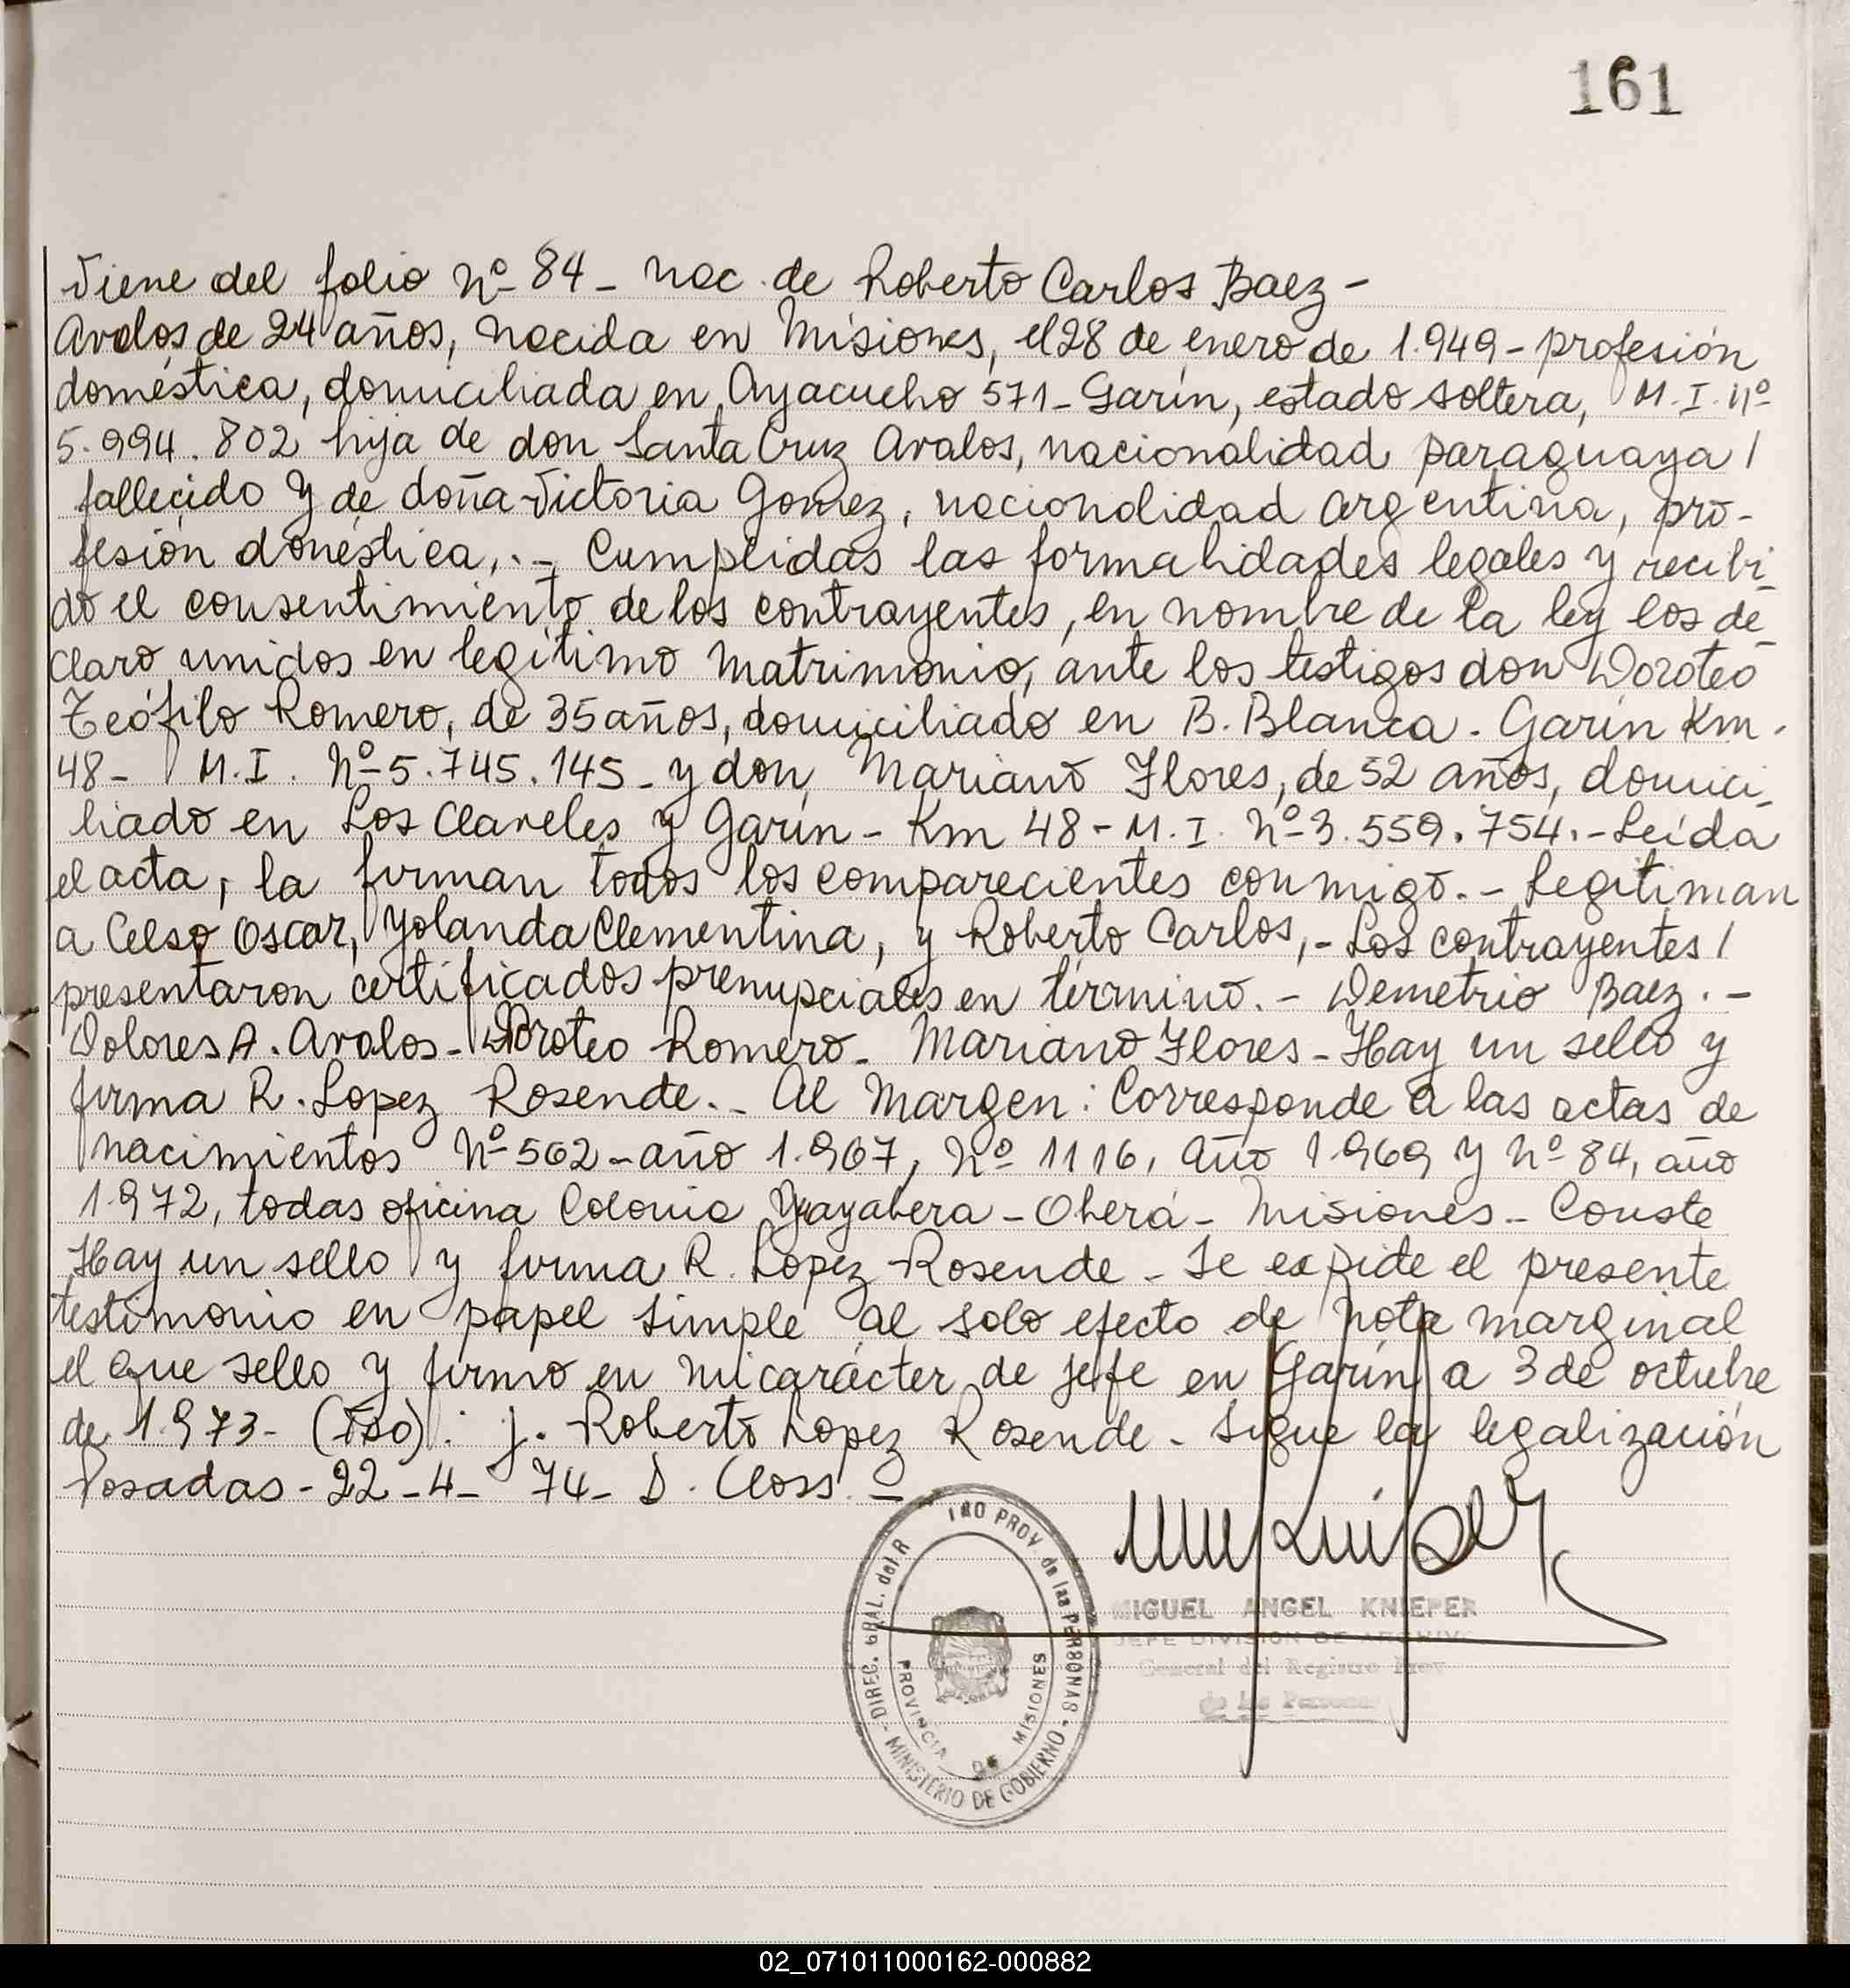 161
Viene del folio Nº 84 - nac. de Roberto Carlos Baez -
Avalos de 24 años, nacida en Misiones, el 28 de enero de 1.949 - profesión
doméstica, domiciliada en Ayacucho 571 - Garin, estado soltera, M.I. Nº
5.994.802 hija de don Santa Cruz Avalos, nacionalidad paraguaya /
fallecido y de doña Victoria Gomez, nacionalidad argentina, pro-
fesión doméstica,.- Cumplidas las formalidades legales y recibi-
do el consentimiento de los contrayentes, en nombre de la ley los de-
claro unidos en legítimo matrimonio, ante los testigos don Doroteo
Teófilo Romero, de 35 años, domiciliado en B. Blanca - Garin Km.
48 - M.I. Nº 5.745.145 - y don Mariano Flores, de 52 años, domici-
liado en Los Claveles y Garin - Km 48 - M.I. Nº 3.559.754.- Leída
el acta, la firman todos los comparecientes conmigo. - Legitiman
a Celso Oscar, Yolanda Clementina, y Roberto Carlos,- Los contrayentes /
presentaron certificados prenupciales en término. - Demetrio Baez. -
Dolores A. Avalos - Doroteo Romero - Mariano Flores - Hay un sello y
firma R. Lopez Rosende. - Al Margen: Corresponde a las actas de
nacimientos Nº 562 - año 1.967, Nº 1116, año 1.969 y Nº 84, año
1.972, todas oficina Colonia Yayabera - Oberá - Misiones - Conste
Hay un sello y firma R. Lopez Rosende - Se expide el presente
testimonio en papel simple al solo efecto de nota marginal
el que sello y firmo en mi carácter de jefe en Garin a 3 de octubre
de 1.973 - (Fdo): J. Roberto Lopez Rosende - Sigue la legalización
Posadas - 22 - 4 - 74 - D. Closs. -
DIREC. GRAL. del R PROV. de las PERSONAS - MINISTERIO DE GOBIERNO
PROVINCIA DE MISIONES
MIGUEL ANGEL KNIEPER
JEFE DIVISION DE ARCHIVO
General del Registro Prov
de las Personas
02_071011000162-000882